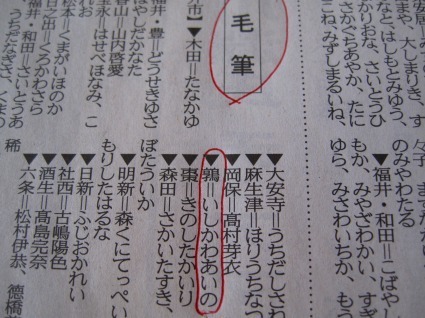 まや、大しまりき、す
なと、はしもとみゆう、
かりおな、さいとうひ
まさかぐちあやか、たに
こね、みずしまるいね、
々子、
のみやわたる
▼福井・和田＝こばやし
もか、みやざわかい、すぎ
ゆら、みざわいちか、もう
毛筆
市】▼木田＝たなかゆ
▼大安寺＝うちだしさわ
▼麻生津＝ほりうちなつ
▼岡保＝髙村芽衣
▼鶉＝いしかわあいの
▼棗＝きのしたかいり
▼森田＝さかいたすき、
ぼたういか
▼明新＝森くにてっぺい
もりしたはるな
▼日新＝ふじおかれい
▼社西＝古嶋陽色
▼酒生＝髙島完奈
▼六条＝松村伊恭、德橋
福井・豊＝どうせきゆさ
はやしだかなた
＝山内啓愛
永＝はせべほなみ、こ
れお
松本＝くまがいほのか
日之出＝くろかわさら
福井・和田＝さいとうあ
うちだなぎさ、くほの
稀